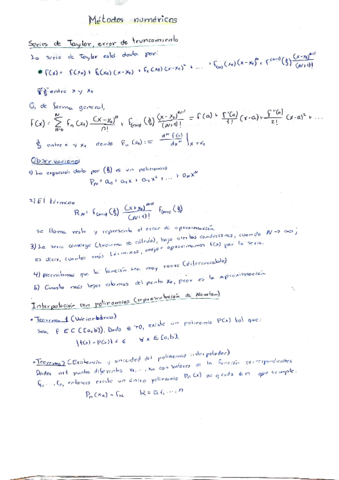 Métodos numéricos
Series de Taylor, error de truncamiento
La serie de Taylor está dada por:
f(x) = f(x₀) + f₁(x₀)(x-x₀) + f₂(x₀)(x-x₀)² + ... +
entre x y x₀
O, de forma general,
entre x y x₀ donde
Observaciones
1) La expansión dada por es un polinomio
Pₙ = a₀ + a₁x + a₂x² + ... + aₙxⁿ
2) El término
se llama resto y representa el error de aproximación
3) La serie converge (teorema de cálculo), bajo ciertas condiciones, cuando N → ∞;
es decir, cuantos más términos, mejor aproximamos f(x) por la serie.
4) Necesitamos que la función sea muy suave (diferenciable)
5) Cuanto más lejos estemos del punto x₀, peor es la aproximación
Interpolación con polinomios (representación de Newton)
• Teorema 1 (Weierstrass)
Sea f ∈ C([a,b]). Dado ε >0, existe un polinomio P(x) tal que:
|f(x) - P(x)| < ε ∀x ∈ [a,b].
• Teorema 2 (Existencia y unicidad del polinomio interpolador)
Dados n+1 puntos diferentes x₀, ..., xₙ con valores de la función correspondientes
f₀, ..., fₙ, entonces existe un único polinomio Pₙ(x) de grado ≤ n que cumple:
Pₙ(xₖ) = fₖ k = 0, 1, ..., n